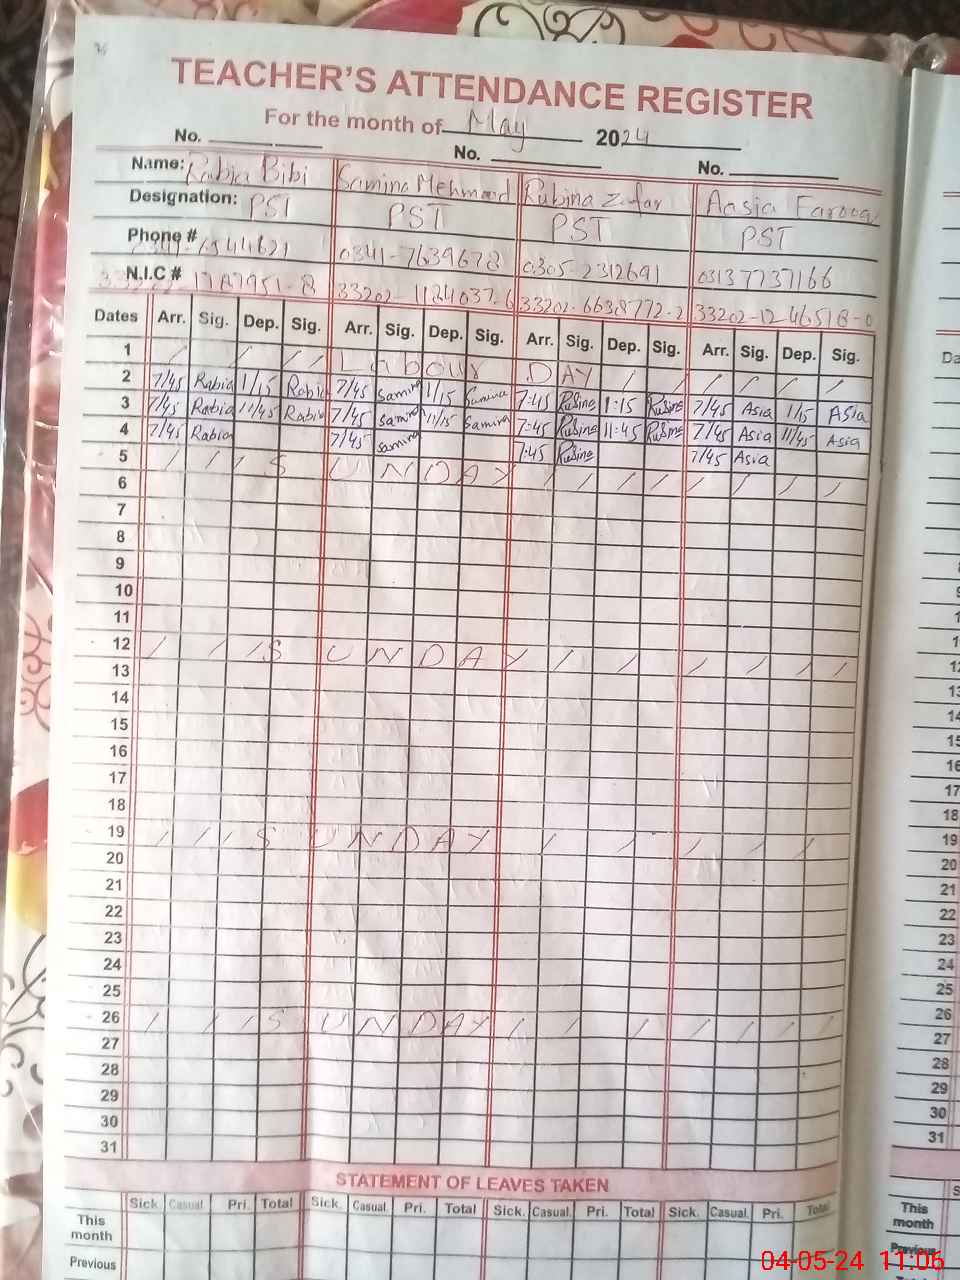 TEACHER'S ATTENDANCE REGISTER
For the month of May 2024
No. No. No.
Name: Rabia Bibi Samina Mehmood Rubina Zafar Aasia Farooq
Designation: PST PST PST PST
Phone # 0341-7639678 0305-2312691 03137737166
N.I.C # 1787951-8 33202-1124037-6 33202-6638772-2 33202-1246518-0
Dates Arr. Sig. Dep. Sig. Arr. Sig. Dep. Sig. Arr. Sig. Dep. Sig. Arr. Sig. Dep. Sig.
1 / / / / Labour DAY / / / / / /
2 7/45 Rabia 1/15 Rabia 7/45 Samina 1/15 Samina 7:45 Rubina 1:15 Rubina 7/45 Asia 1/15 Asia
3 7/45 Rabia 11/45 Rabia 7/45 Samina 11/15 Samina 7:45 Rubina 11:45 Rubina 7/45 Asia 11/45 Asia
4 7/45 Rabia 7/45 Samina 7:45 Rubina 7/45 Asia
5 / / / SUNDAY / / / / / / / /
6
7
8
9
10
11
12 / / / SUNDAY / / / / / /
13
14
15
16
17
18
19 / / / SUNDAY / / / / /
20
21
22
23
24
25
26 / / / SUNDAY / / / / / / /
27
28
29
30
31
STATEMENT OF LEAVES TAKEN
Sick. Casual. Pri. Total Sick. Casual. Pri. Total Sick. Casual. Pri. Total Sick. Casual. Pri. Total
This month
Previous
Da
12
13
14
15
16
17
18
19
20
21
22
23
24
25
26
27
28
29
30
31
This month
Previous
04-05-24 11:06